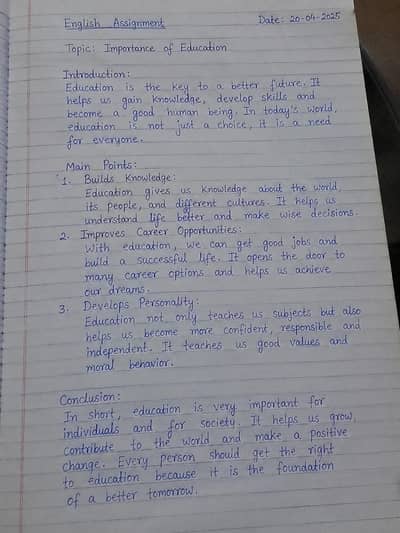 English Assignment Date: 20-04-2025
Topic: Importance of Education
Introduction:
Education is the key to a better future. It
helps us gain knowledge, develop skills and
become a good human being. In today's world,
education is not just a choice, it is a need
for everyone.
Main Points:
1. Builds Knowledge:
Education gives us knowledge about the world,
its people, and different cultures. It helps us
understand life better and make wise decisions.
2. Improves Career Opportunities:
With education, we can get good jobs and
build a successful life. It opens the door to
many career options and helps us achieve
our dreams.
3. Develops Personality:
Education not only teaches us subjects but also
helps us become more confident, responsible and
independent. It teaches us good values and
moral behavior.
Conclusion:
In short, education is very important for
individuals and for society. It helps us grow,
contribute to the world and make a positive
change. Every person should get the right
to education because it is the foundation
of a better tomorrow.